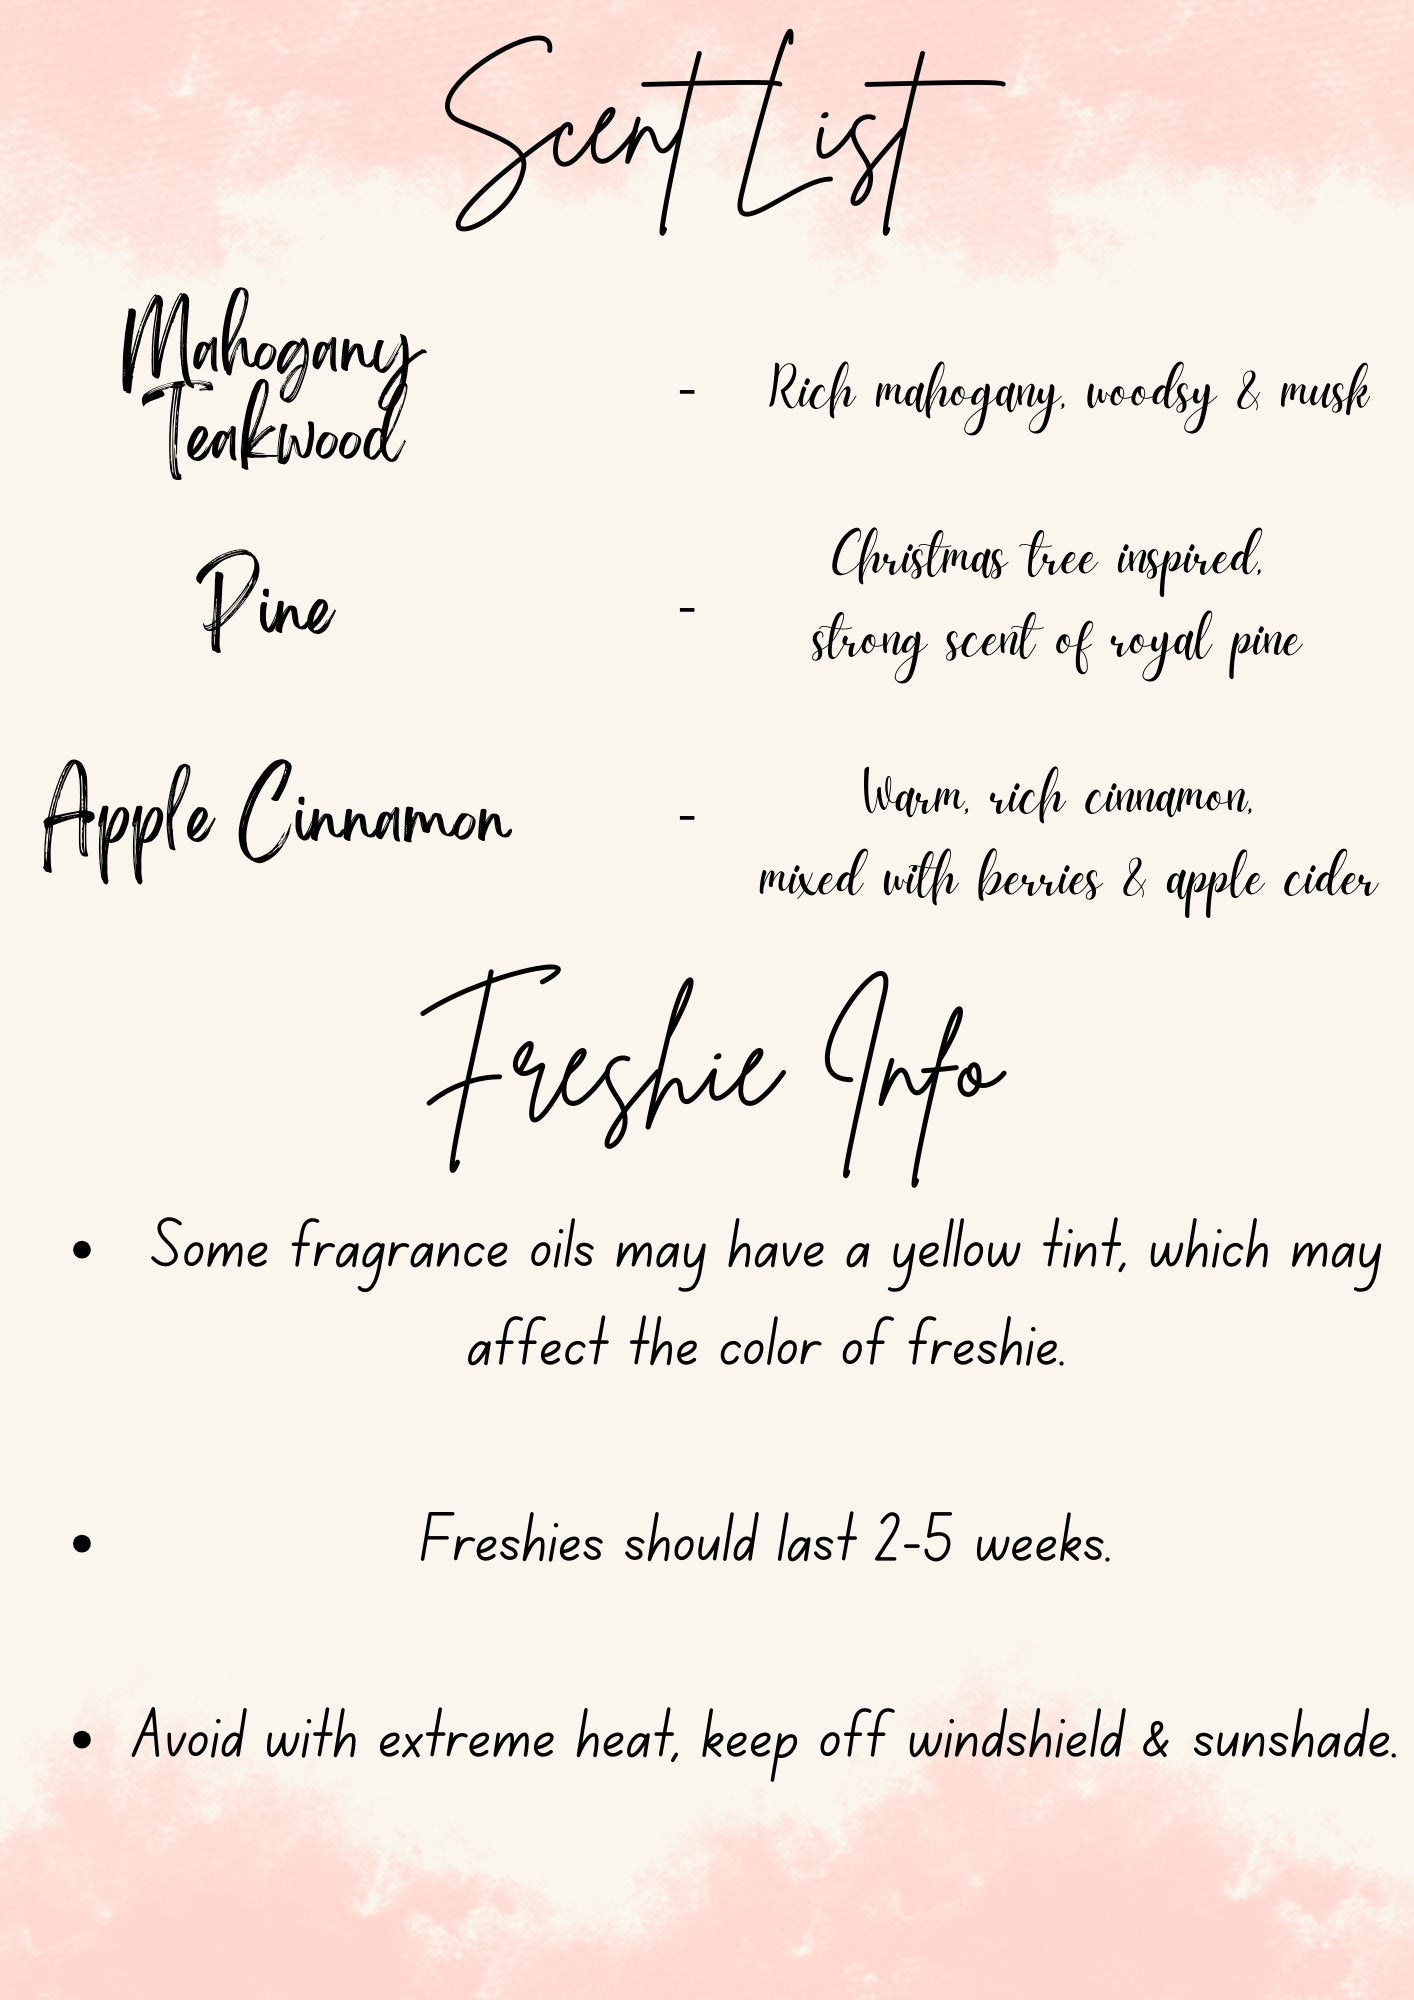 Scent List
Mahogany
Teakwood
- Rich mahogany, woodsy & musk
Pine
- Christmas tree inspired,
strong scent of royal pine
Apple Cinnamon
- Warm, rich cinnamon,
mixed with berries & apple cider
Freshie Info
• Some fragrance oils may have a yellow tint, which may
affect the color of freshie.
• Freshies should last 2-5 weeks.
• Avoid with extreme heat, keep off windshield & sunshade.